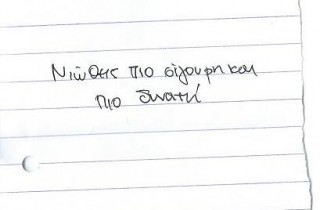 Νιώθεις πιο σίγουρη και
πιο δυνατή